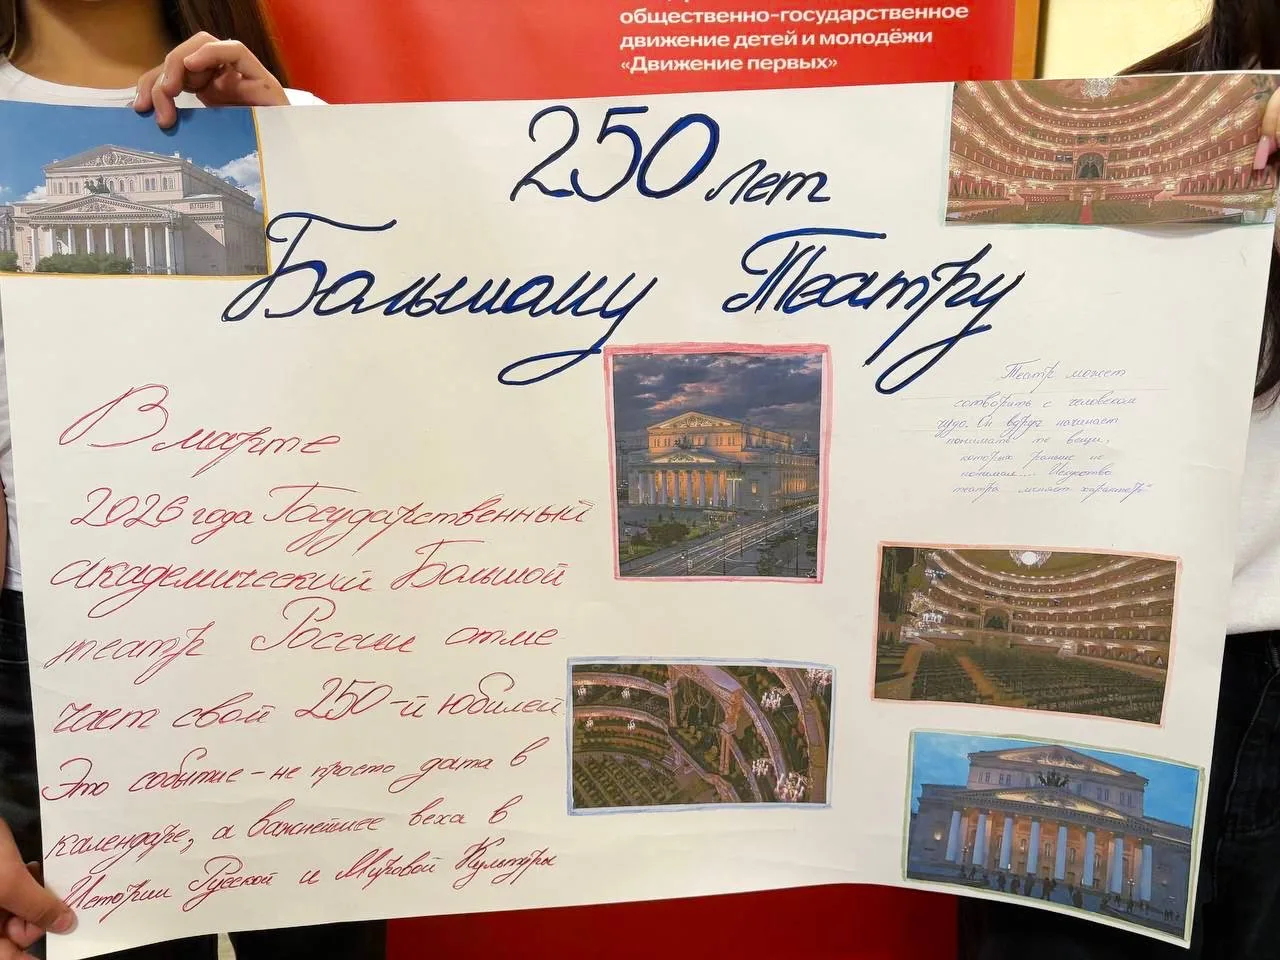 общественно-государственное
движение детей и молодёжи
«Движение первых»
250 лет
Большому Театру
В марте
2026 года Государственный
академический Большой
театр России отме
чает свой 250-й юбилей
Это событие - не просто дата в
календаре, а важнейшее веха в
Истории Русской и Мировой Культуры
Театр может
сотворить с человеком
чудо. Он вдруг начинает
понимать те вещи,
которых раньше не
понимал.... Искусство
театра меняет характер"